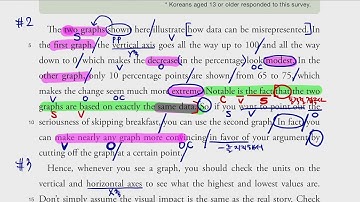 * Koreans aged 13 or older responded to this survey.
#2
The two graphs shown here illustrate how data can be misrepresented. In
the first graph, the vertical axis goes all the way up to 100 and all the way
down to 0, which makes the decrease in the percentage look modest. In the
other graph, only 10 percentage points are shown from 65 to 75, which
makes the change seem much more extreme. Notable is the fact that the two
graphs are based on exactly the same data. So if you want to point out the
seriousness of skipping breakfast, you can use the second graph. In fact, you
10 can make nearly any graph more convincing in favor of your argument by
cutting off the graph at a certain point.
#3
Hence, whenever you see a graph, you should check the units on the
vertical and horizontal axes to see what the highest and lowest values are.
Don't simply assume the visual impact is the same as the real story. Check